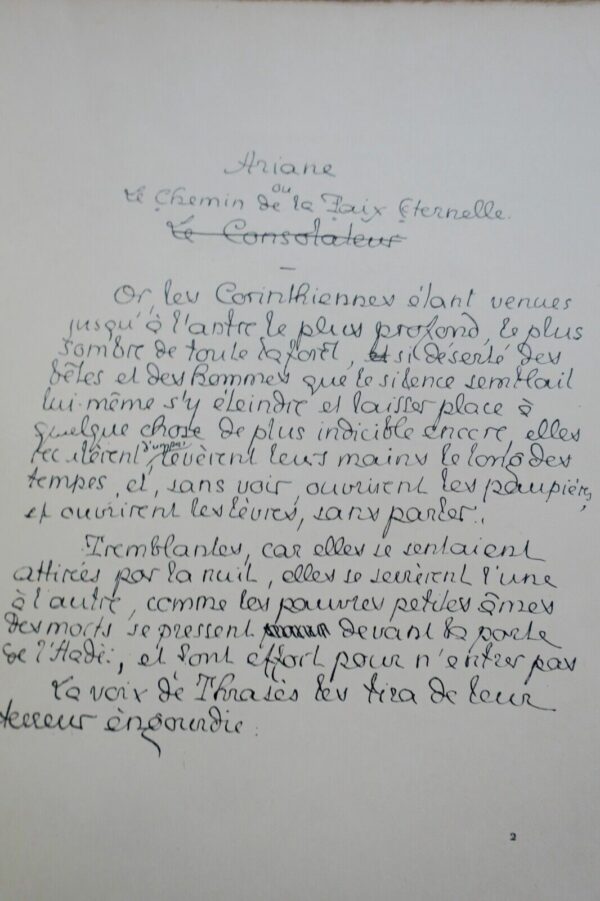 Ariane
ou
Le Chemin de la Paix Eternelle.
Le Consolateur
Or, les Corinthiennes étant venues
jusqu'à l'antre le plus profond, le plus
sombre de toute la forêt, et si déserté des
bêtes et des hommes que le silence semblait
lui-même s'y éteindre et laisser place à
quelque chose de plus indicible encore, elles
reculèrent, levèrent leurs mains le long des
tempes, et, sans voir, ouvrirent les paupières,
et ouvrirent les lèvres, sans parler.
Tremblantes, car elles se sentaient
attirées par la nuit, elles se serrèrent l'une
à l'autre, comme les pauvres petites âmes
des morts se pressent devant la porte
de l'Hadès, et font effort pour n'entrer pas
La voix de Thrasès les tira de leur
terreur engourdie.
2